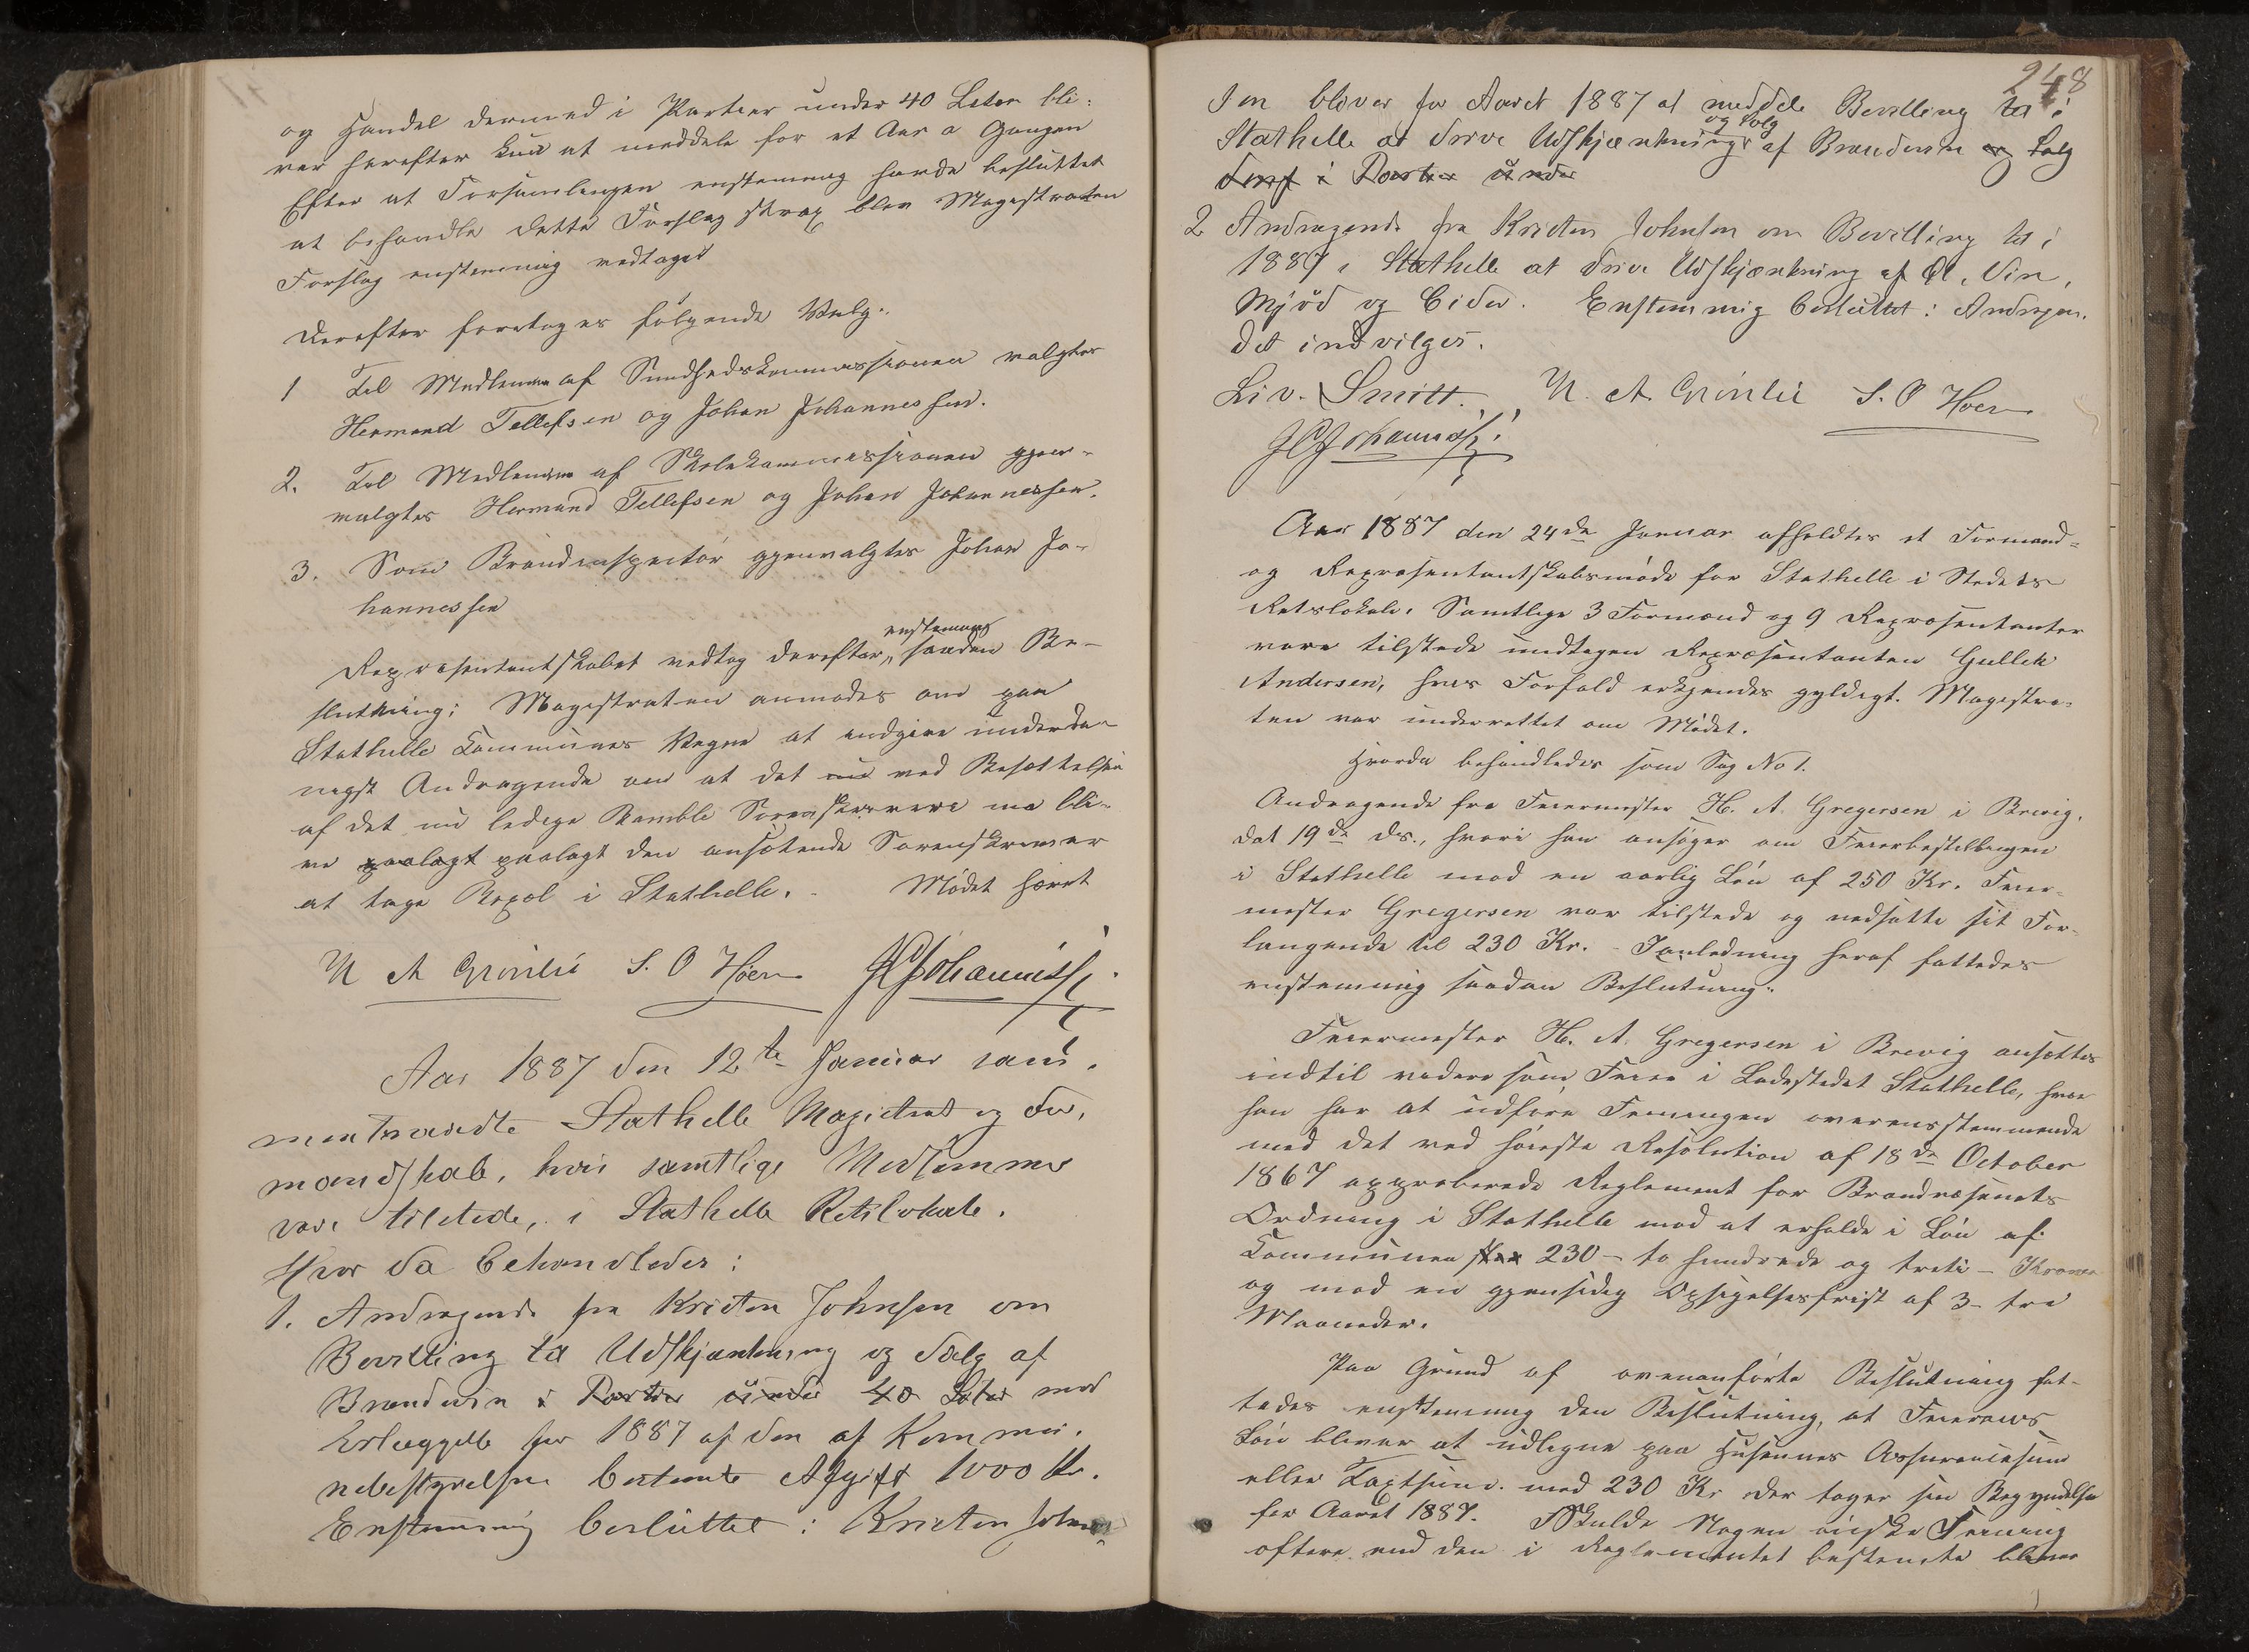 og Handel dermed i Partier under 40 Liter bli-
ver herefter kun at meddele for et Aar a Gangen
Efter at Forsamlingen enstemmig havde besluttet
at behandle dette Forslag strax blev Magistraten
Forslag enstemmig vedtaget
Derefter foretoges følgende Valg:
1 Til Medlemmer af Sundhedskommissionen valgtes
Hermand Tellefsen og Johan Johannessen.
2. Til Medlemmer af Skolekommissionen gjen-
valgtes Hermand Tellefsen og Johan Johannessen.
3. Som Brandinspektør gjenvalgtes Johan Jo-
hannessen
enstemmig
Repræsentantskabet vedtog derefter saadan Be-
slutning: Magistraten anmodes om paa
Stathelle Kommunes Vegne at indgive underda-
nigst Andragende om at det ved Besættelsen
af det nu ledige Bamble Sorenskriveri maa bli-
ve paalagt paalagt den ansøttende Sorenskriver
at tage Bopæl i Stathelle. - Mødet hævet
N A Grønlie S. O Hoen J C Johannessen
Aar 1887 den 12te Januar sam-
mentraadte Stathelle Magistrat og For-
mandskab, hvis samtlige Medlemmer
vare tilstede, i Stathelle Retslokale.
Hvor da behandledes:
1. Andragende fra Kristen Johnsen om
Bevilling til Udskjænkning og Salg af
Brændevin i Partier under 40 Liter mod
Erlæggelse for 1887 af den af Kommu-
nebestyrelsen bestemte Afgift 1000 Kr.
Enstemmig besluttet: Kristen John-
248
sen bliver for Aaret 1887 at meddele Bevilling til i
og Salg
Stathelle at drive Udskjænkning af Brændevin og Salg
deraf i Partier under
2 Andragende fra Kristen Johnsen om Bevilling til i
1887 i Stathelle at drive Udskjænkning af Øl, Vin,
Mjød og Cider. Enstemmig besluttet: Andragen-
det indvilges.
Liv. Smitt. N. A. Grønlie S. O Hoen
J C Johannessen
Aar 1887 den 24de Januar afholdtes et Formand-
og Repræsentantskabsmøde for Stathelle i Stedets
Retslokale. Samtlige 3 Formænd og 9 Repræsentanter
vare tilstede undtagen Repræsentanten Gullek
Andersen, hvis Forfald erkjendes gyldigt. Magistra-
ten var underrettet om Mødet.
Hvorda behandledes som Sag No 1.
Andragende fra Feiermester H. A. Gregersen i Brevig,
dat 19de ds., hvori han ansøger om Feierbestillingen
i Stathelle mod en aarlig Løn af 250 Kr. Feier-
mester Gregersen var tilstede og nedsatte sit For-
langende til 230 Kr. - I Anledning heraf fattedes
enstemmig saadan Beslutning:
Feiermester H. A. Gregersen i Brevig ansættes
indtil videre som Feier i Ladestedet Stathelle, hvor
han har at udføre Feiningen overensstemmende
med det ved høieste Resolution af 18de October
1867 approberede Reglement for Brandvæsenets
Ordning i Stathelle mod at erholde i Løn af
Kommunen 230 - to hundrede og treti - Kroner
og mod en gjensidig Opsigelsesfrist af 3 - tre
Maaneder.
Paa Grund af ovenanførte Beslutning fat-
tedes enstemmig den Beslutning, at Feierens
Løn bliver at udligne paa Husenes Assurancesum
eller Taxtsum. med 230 Kr der tager sin Begyndelse
for Aaret 1887. Skulde Nogen ønske Feining
oftere end den i Reglementet bestemte bliver